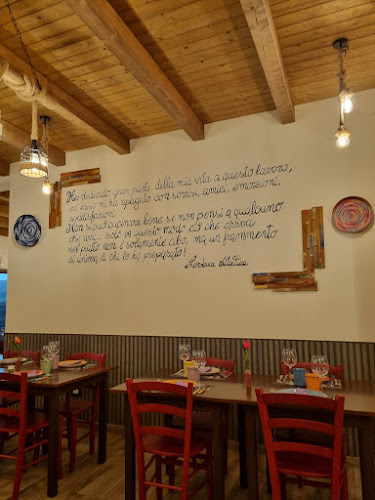 Ho dedicato gran parte della mia vita a questo lavoro,
ed esso mi ha ripagato con sorrisi, amici, emozioni,
soddisfazioni.
Non si può cucinare bene se non pensi a qualcuno
che ami... solo in questo modo ciò che arriva
nel piatto non è solamente cibo, ma un frammento
di anima di chi lo ha preparato!